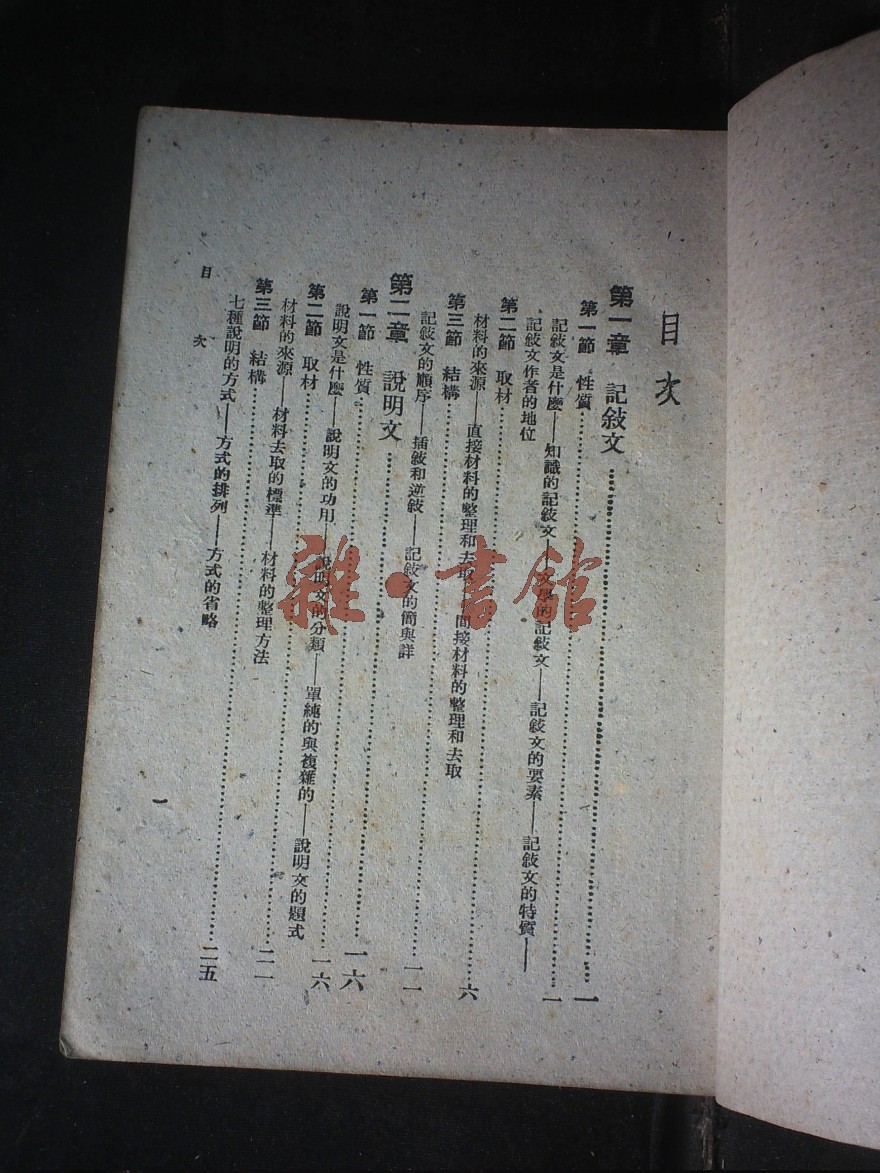 目次
第一章 記敍文……一
第一節 性質……一
記敍文是什麼——知識的記敍文——文學的記敍文——記敍文的要素——記敍文的特質——
記敍文作者的地位
第二節 取材……六
材料的來源——直接材料的整理和去取——間接材料的整理和去取
第三節 結構……一一
記敍文的順序——插敍和逆敍——記敍文的簡與詳
第二章 說明文……一六
第一節 性質……一六
說明文是什麼——說明文的功用——說明文的分類——單純的與複雜的——說明文的題式
第二節 取材……二一
材料的來源——材料去取的標準——材料的整理方法
第三節 結構……二五
七種說明的方式——方式的排列——方式的省略
目次
一
雜·書館